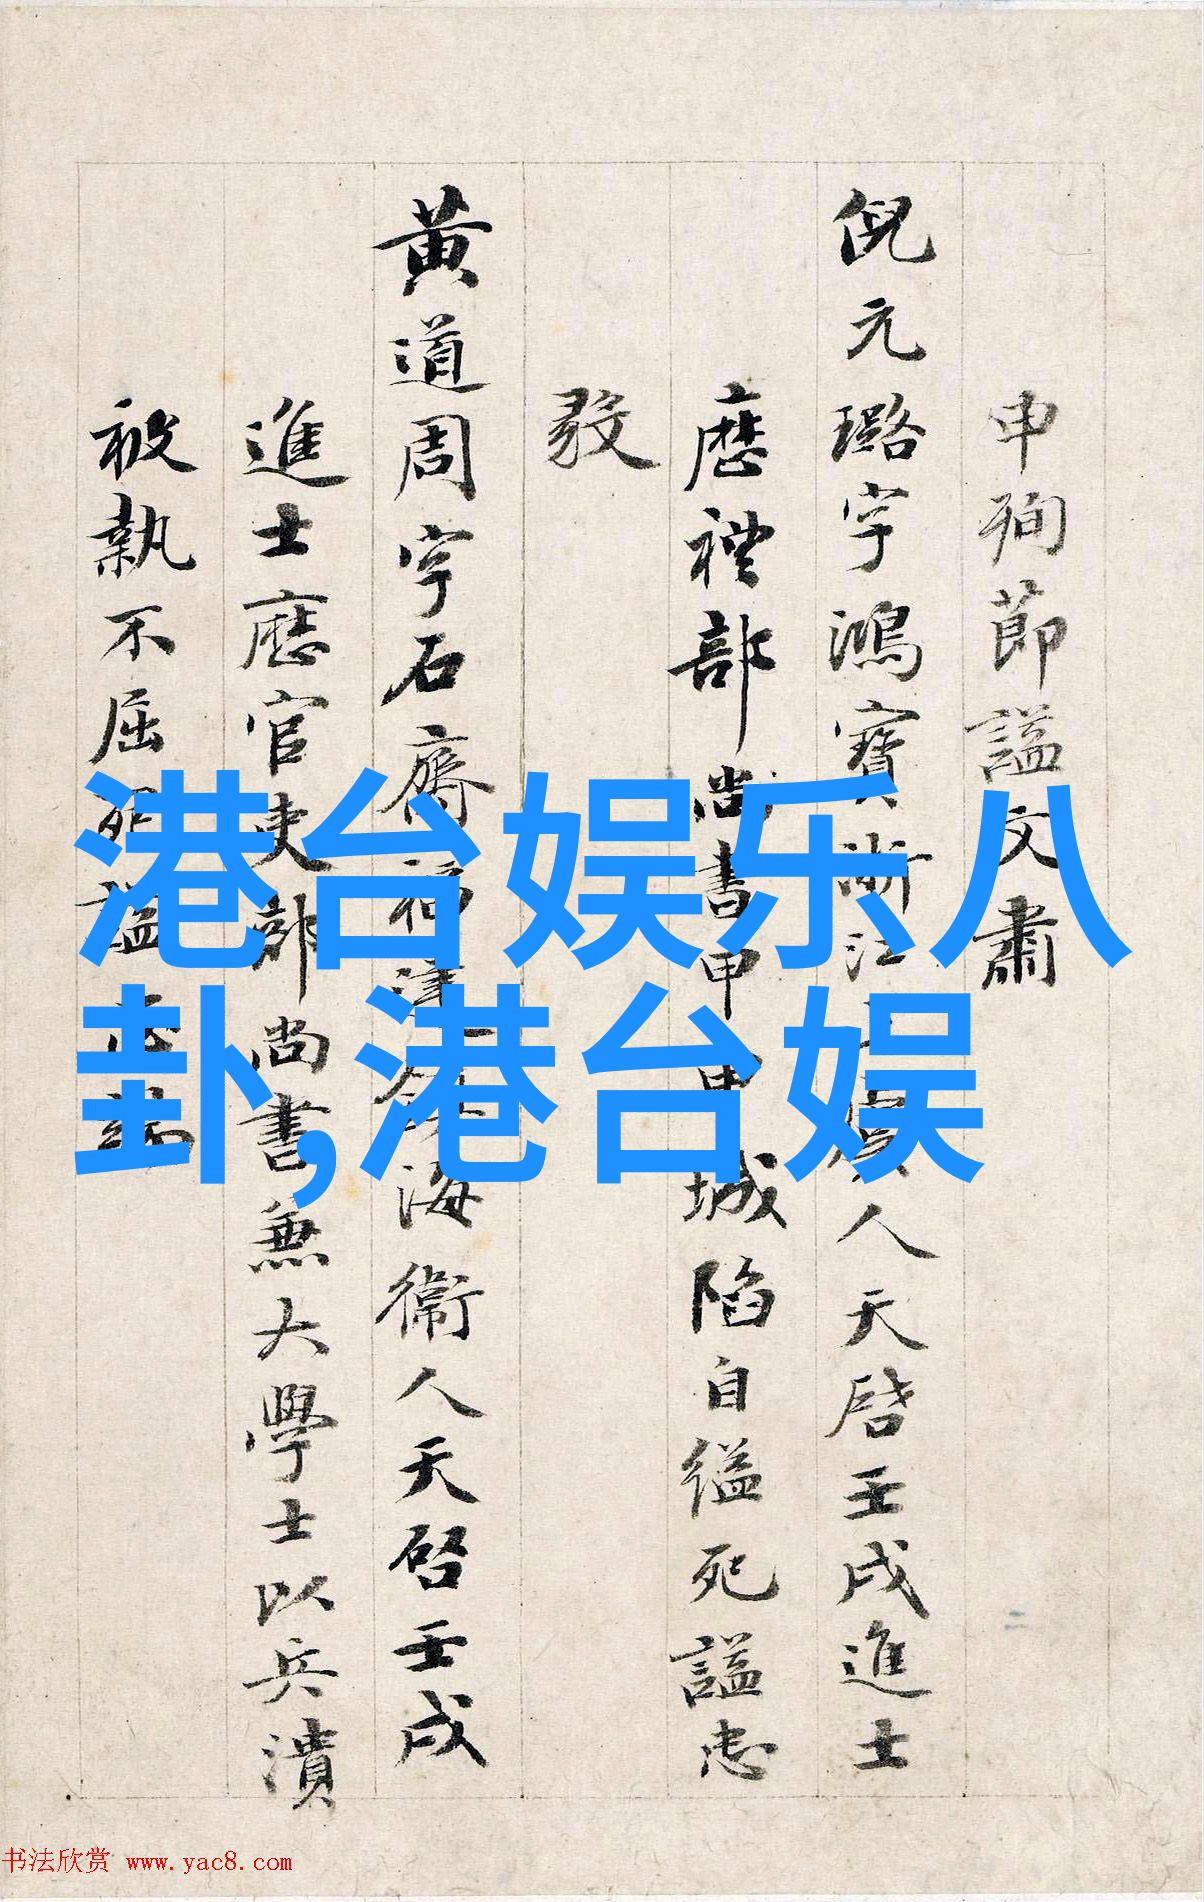 申殉節謚文肅
倪元璐字鴻寳浙江上虞人天啓壬戌進士
歷禮部尚書甲申城陷自縊死謚忠
敎
黄道周字石齋福建鎮海衞人天啓壬戌
進士歷官吏部尚書兼大學士以兵潰
被執不屈死謚忠
港台娱乐八
卦,港台娱
书法欣赏 www.yac8.com